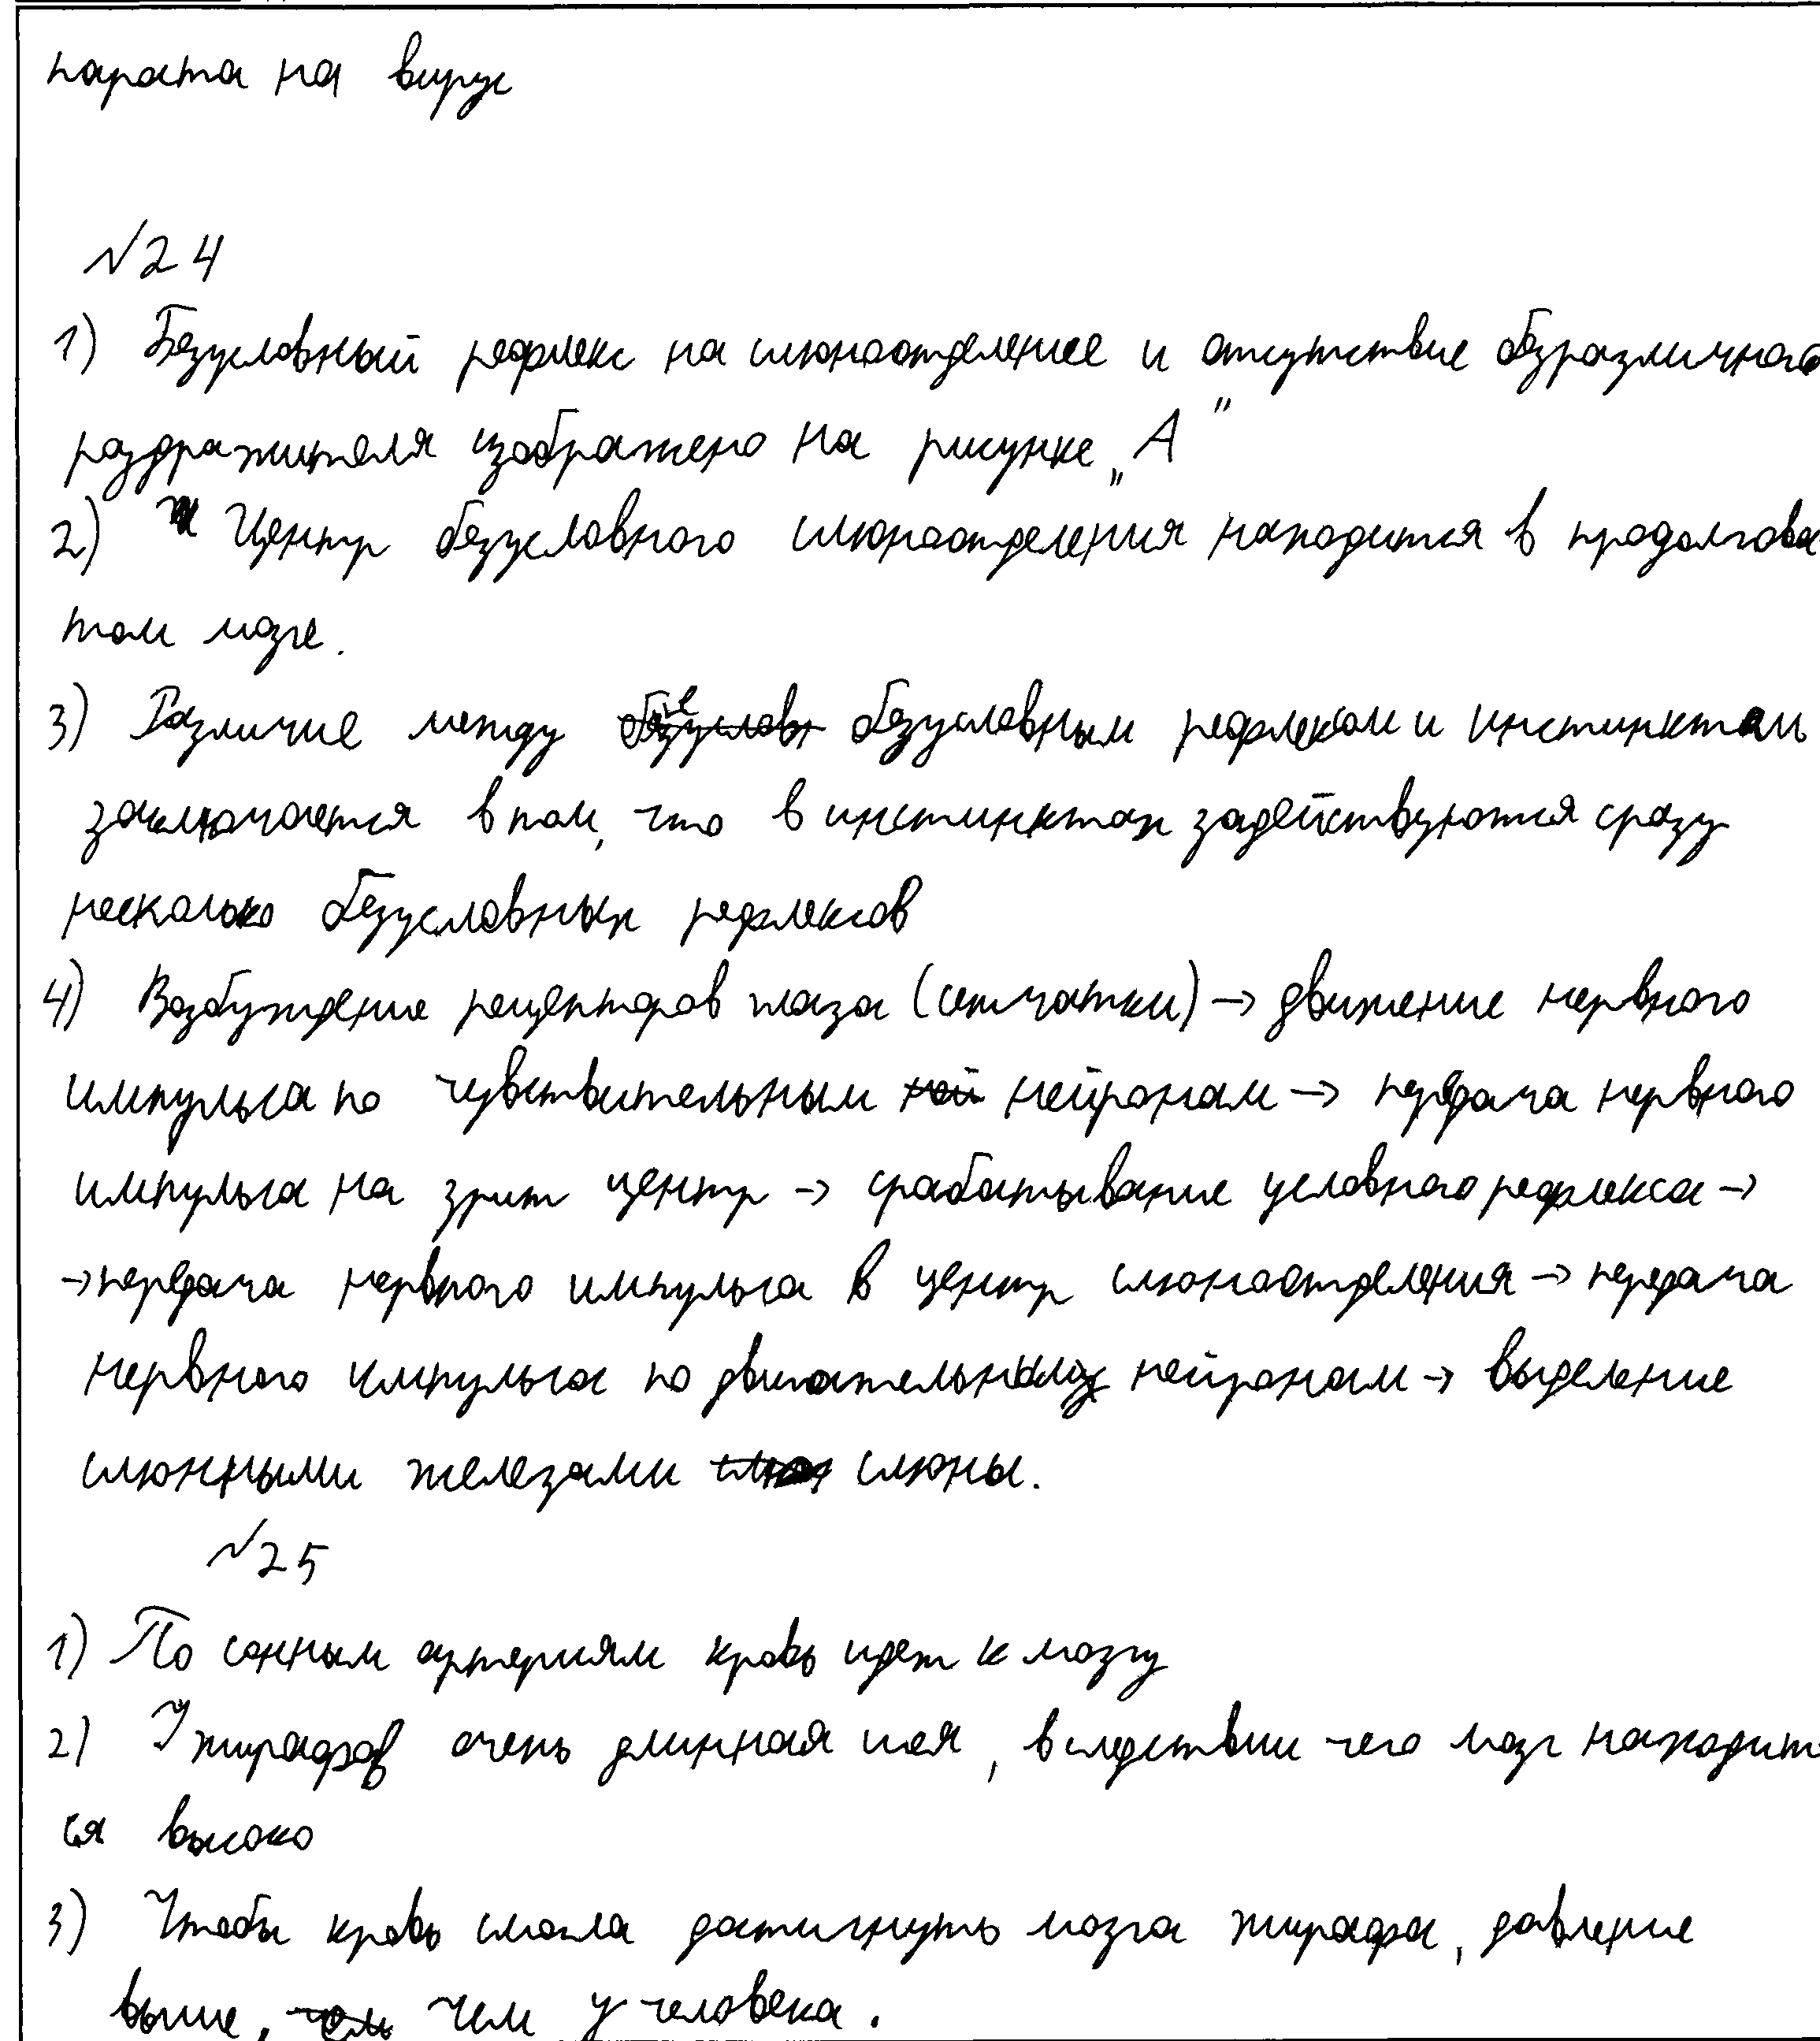 парата на вирус
№24
1) Безусловный рефлекс на слюноотделение и отсутствие безразличного
раздражителя изображено на рисунке „А"
2) Центр безусловного слюноотделения находится в продолгова
том мозге.
3) Различие между безусловным рефлексом и инстинктом
заключается в том, что в инстинктах задействуются сразу
несколько безусловных рефлексов
4) Возбуждение рецепторов глаза (сетчатки) → движение нервного
импульса по чувствительным нейронам → передача нервного
импульса на зрит центр → срабатывание условного рефлекса →
→ передача нервного импульса в центр слюноотделения → передача
нервного импульса по двигательным нейронам → выделение
слюнными железами слюны.
№25
1) По сонным артериям кровь идет к мозгу
2) У жирафов очень длинная шея, вследствии чего мозг находит
ся высоко
3) Чтобы кровь смогла достигнуть мозга жирафа, давление
выше, чем у человека.